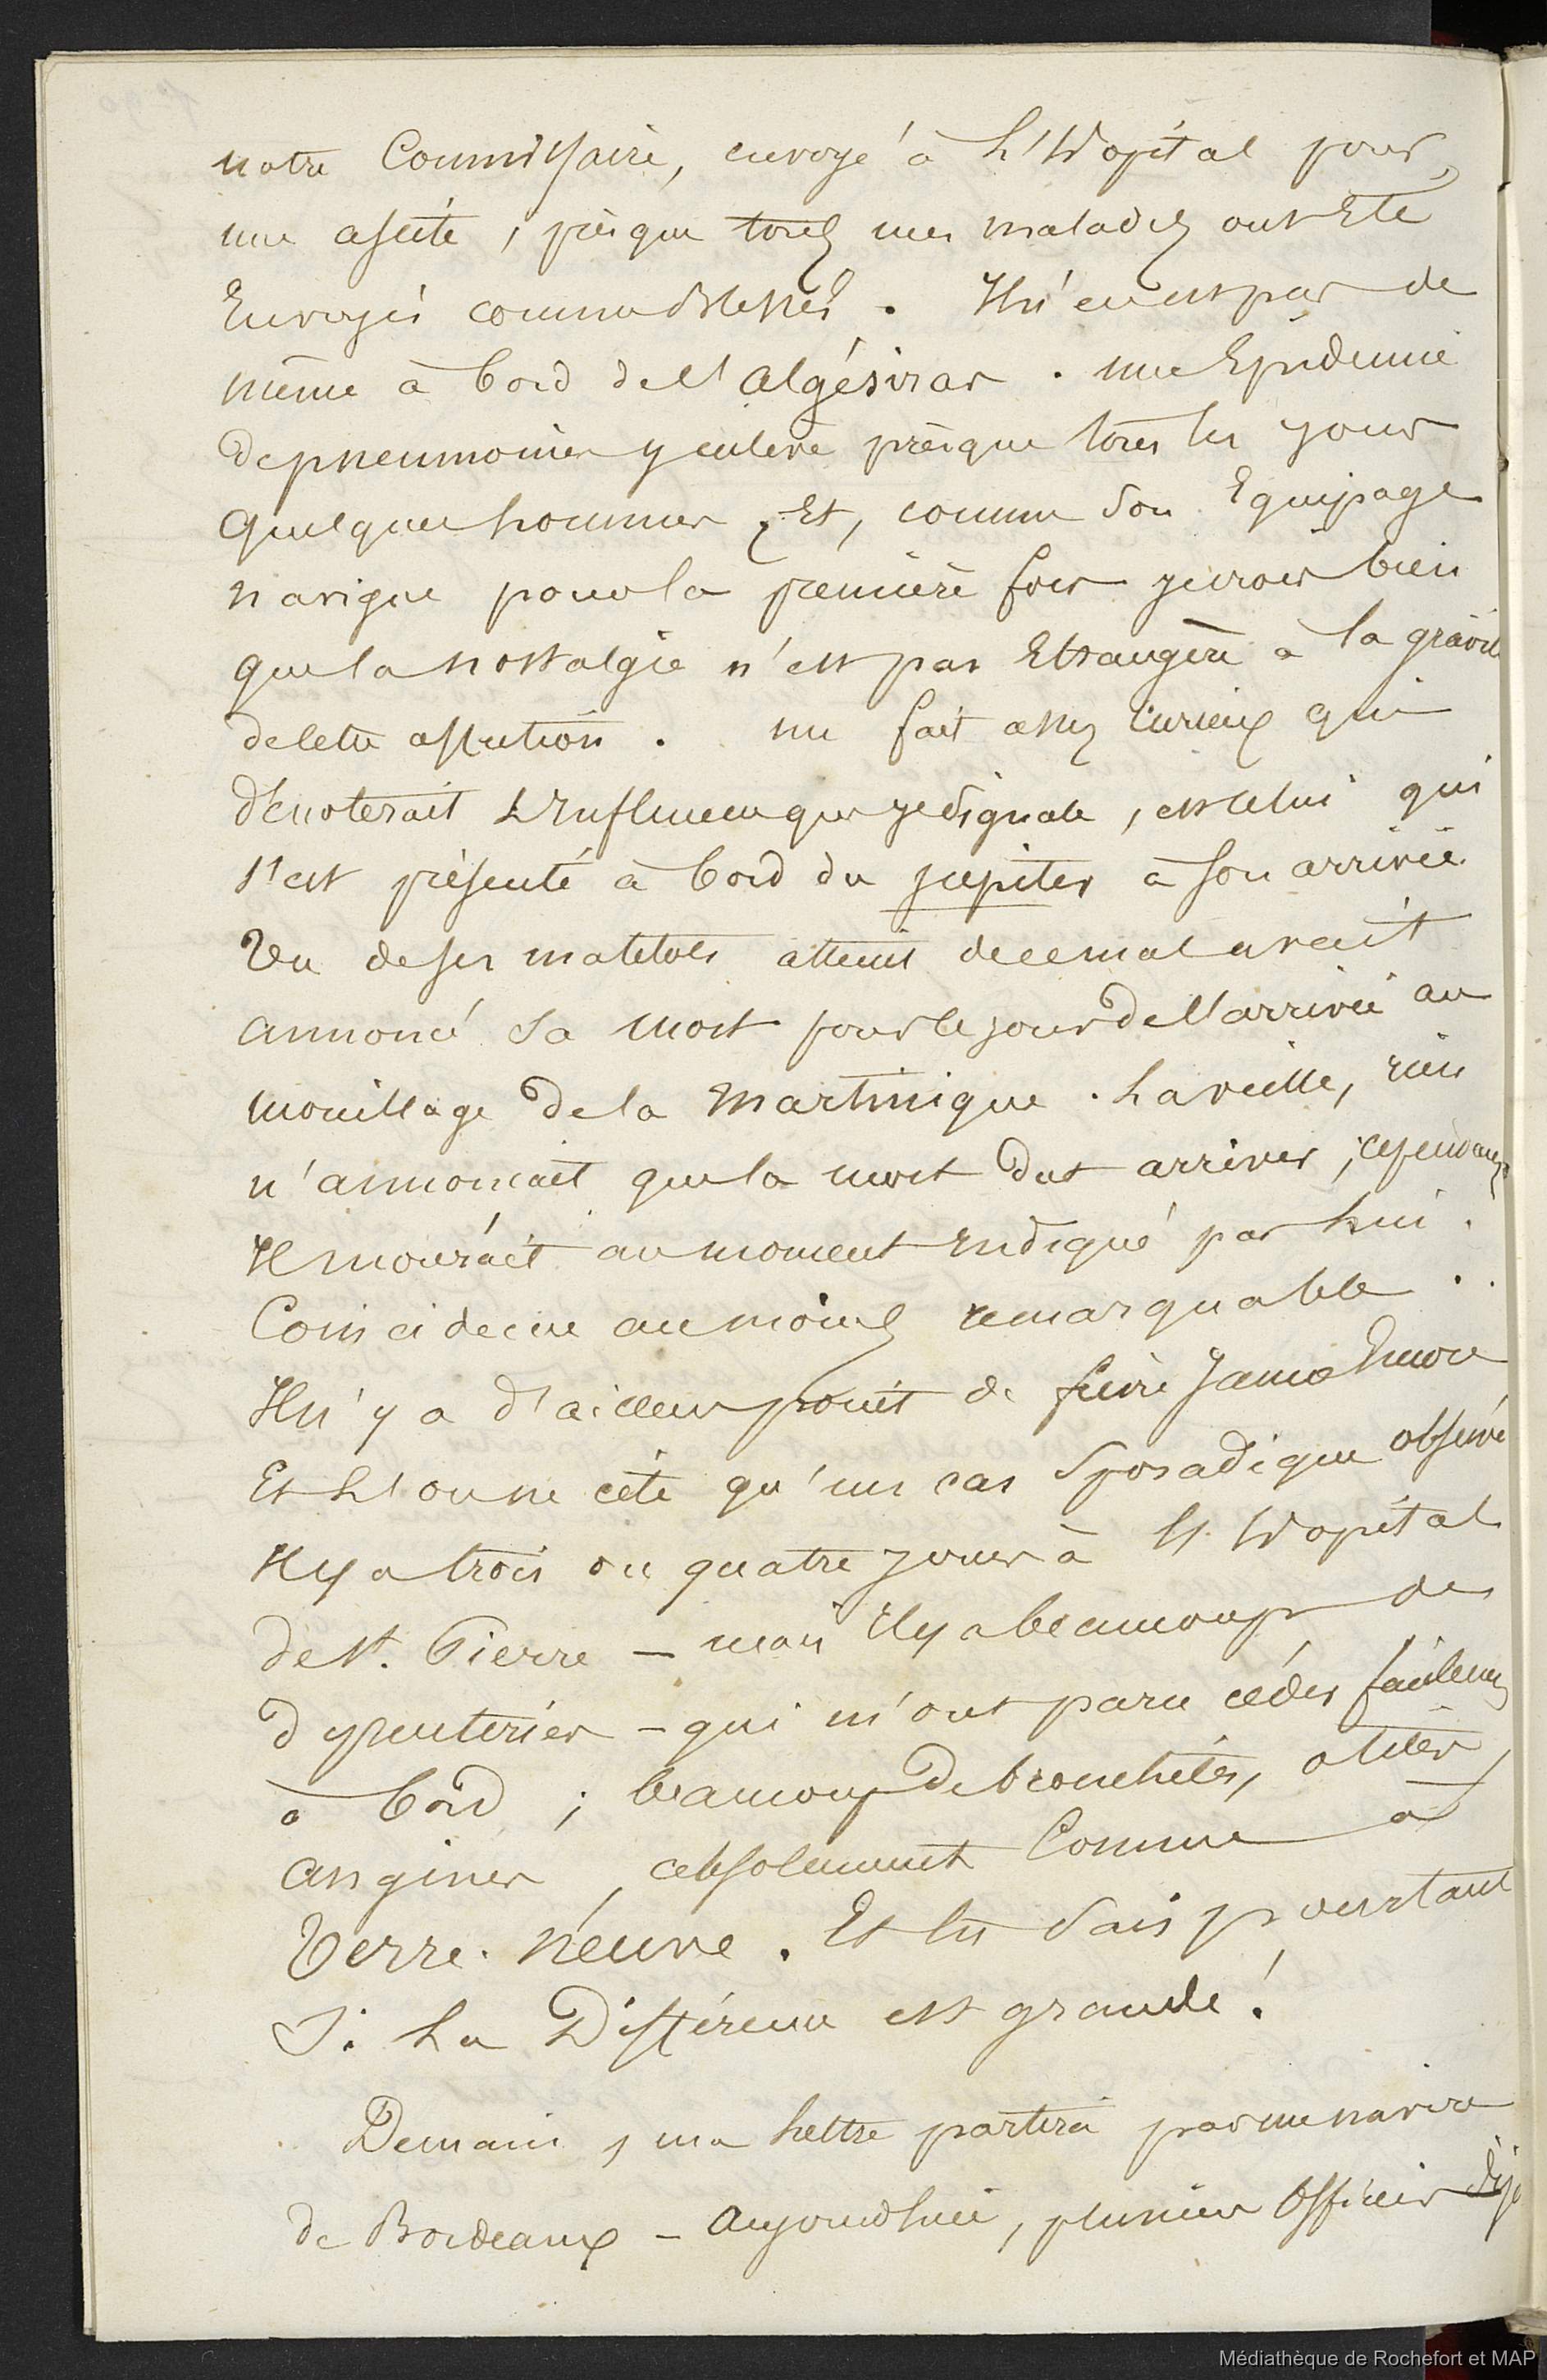 notre Commissaire, envoyé à L'Hopital pour
une ascite, presque tous mes malades ont Eté
Envoyés comme blessés. Il n'en est pas de
même à bord de l'algésiras. une Epidémie
de pneumonies y enlève presque tous les jours
quelques hommes, Et, comme Son Equipage
navigue pour la première fois je crois bien
que la nostalgie n'est pas Etrangère à la gravité
de cette affection. un fait assez curieux qui
dénoterait L'Influence que je signale, est celui qui
s'est présenté à bord du jupiter à son arrivée
Un de ses matelots atteint de ce mal avait
annoncé sa mort pour le jour de l'arrivée au
mouillage de la Martinique. La veille, rien
n'annoncait que la mort dut arriver; cependant
Il mourait au moment Indiqué par Lui.
Coincidence au moins remarquable..
Il n'y a d'ailleurs point de fièvre Jaune Encore
Et L'on ne cite qu'un cas Sporadique observé
Il y a trois ou quatre jours à l'Hopital
de St. Pierre – mais Il y a beaucoup de
dyssenteries – qui m'ont paru céder facilement
à bord; beaucoup de bronchites, otites,
angines, absolument Comme à
Terre-Neuve. Et tu sais pourtant
Si La Différence est grande!
Demain, ma Lettre partira par un navire
de Bordeaux – Aujourdhui, plusieurs Officiers déjà
Médiathèque de Rochefort et MAP